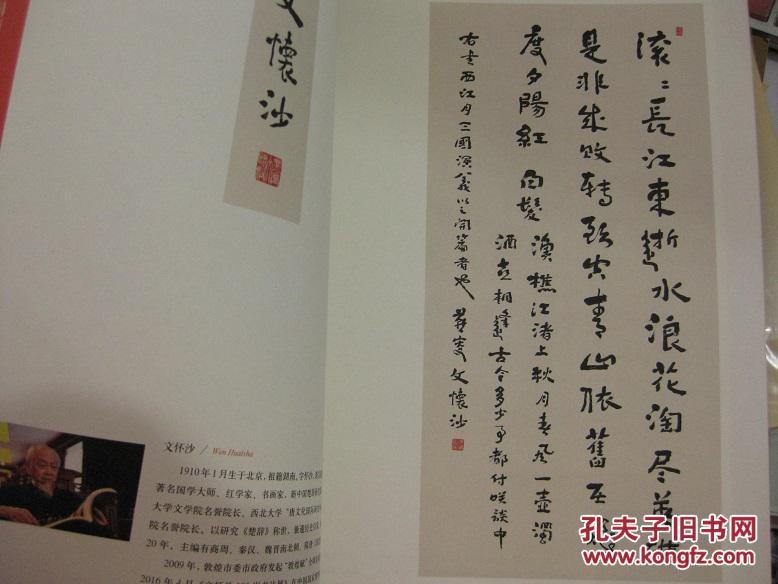 文懷沙
滚〻長江東逝水浪花淘尽英雄
是非成败轉頭空青山依舊在几
度夕陽紅 白髮漁樵江渚上秋月春風一壶濁
酒喜相逢古今多少事都付笑談中
右走西江月三國演義以之開篇者也 燕叟文懷沙
文怀沙 / Wen Huaisha
1910年1月生于北京,祖籍湖南,字怀沙,
著名国学大师、红学家、书画家、新中国楚辞
大学文学院名誉院长、西北大学“唐文化国际研
院名誉院长。以研究《楚辞》称世,兼通
20年,主编有商周、秦汉、魏晋南北朝、隋唐
2009年,敦煌市委市政府发起“敦煌赋”
孔夫子旧书网